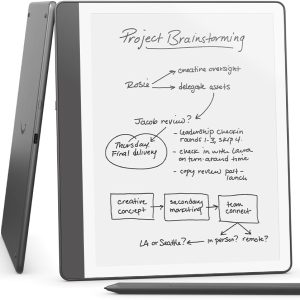 Project Brainstorming
creative oversight
Rosie
delegate assets
Jacob review?
Thursday
Final delivery
- leadership checkin
rounds 1-3, skip 4.
- check in with Laura
on turn around time
- copy review post-
launch
creative
concept
secondary
marketing
team
connect
LA or Seattle?
in person?
remote?